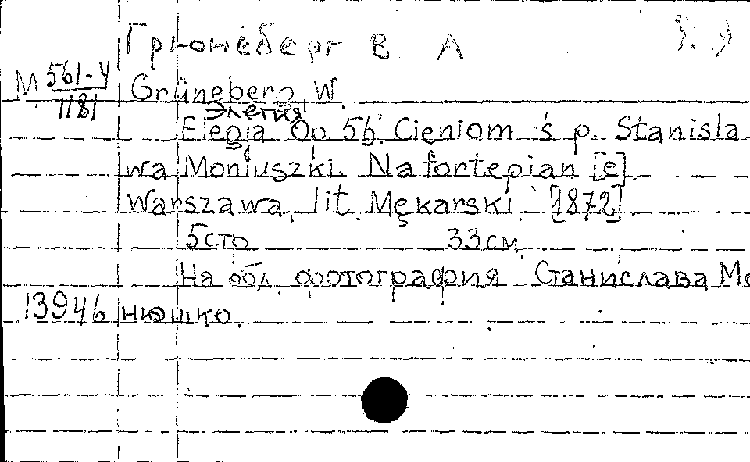 Грюнеберг В. А.
М 561-4
1181
Grüneberg W.
Элегия
Elegia Op 56. Cieniom ś p. Stanisla
wa Moniuszki. Na fortepian [e]
Warszawa, lit. Mękarski, [1872]
5 сто 33 см.
На обл. фотография Станислава Мо
13946 нюшко.